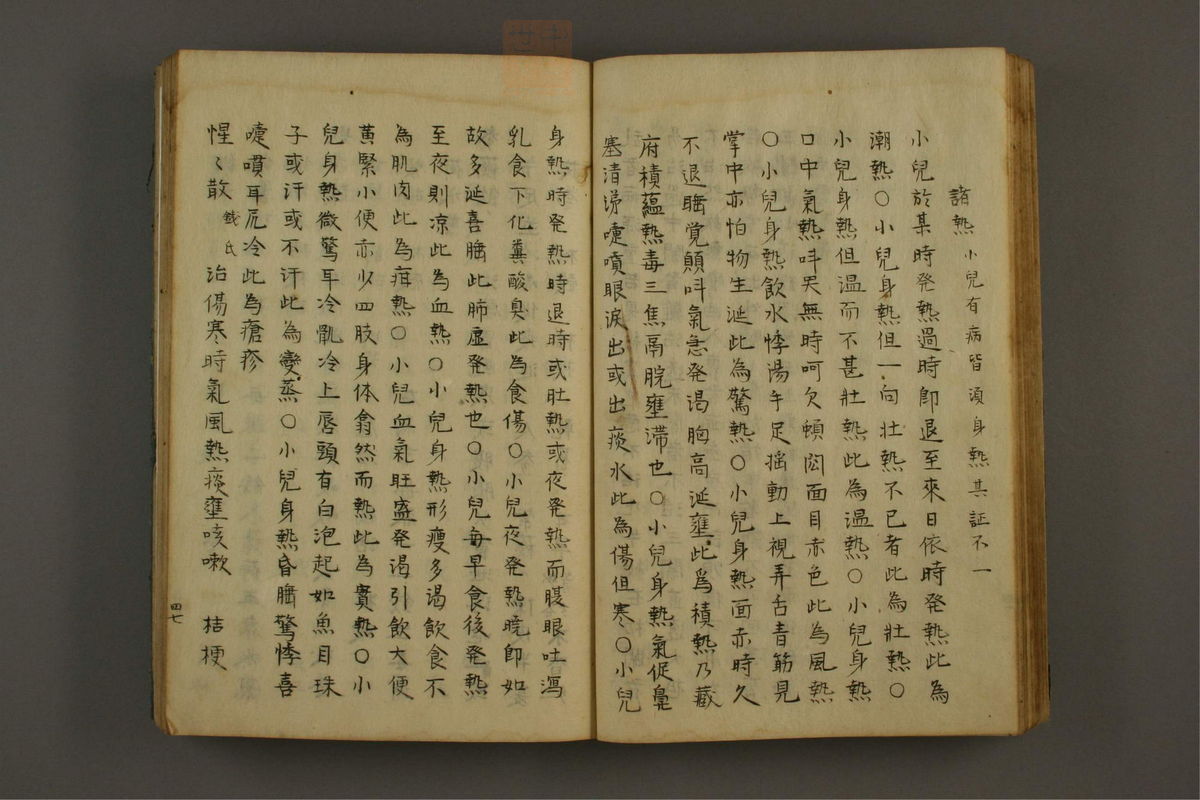 諸熱 小兒有病皆須身熱其証不一
小兒於某時発熱過時即退至來日依時発熱此為
潮熱○小兒身熱但一向壮熱不已者此為壮熱○
小兒身熱但温而不甚壮熱此為温熱○小兒身熱
口中氣熱呌哭無時呵欠頓悶面目赤色此為風熱
○小兒身熱飲水悸湯手足揺動上視弄舌青筋見
掌中亦怕物生涎此為驚熱○小兒身熱面赤時久
不退睡覚顛呌氣急発渇胸高涎壅此為積熱乃藏
府積蘊熱毒三焦鬲脘壅滞也○小兒身熱氣促鼻
塞清涕嚏噴眼涙出或出痰水此為傷但寒○小兒
身熱時発熱時退時或肚熱或夜発熱而腹眼吐瀉
乳食下化糞酸臭此為食傷○小兒夜発熱晩即如
故多涎喜睡此肺虚発熱也○小兒毎早食後発熱
至夜則凉此為血熱○小兒身熱形瘦多渇飲食不
為肌肉此為疳熱○小兒血氣旺盛発渇引飲大便
黄緊小便亦少四肢身体翕然而熱此為實熱○小
兒身熱微驚耳冷骩冷上唇頭有白泡起如魚目珠
子或汗或不汗此為變蒸○小兒身熱昏睡驚悸喜
嚏噴耳尻冷此為瘡疹
惺〻散 銭氏 治傷寒時氣風熱痰壅咳嗽 桔梗
四七